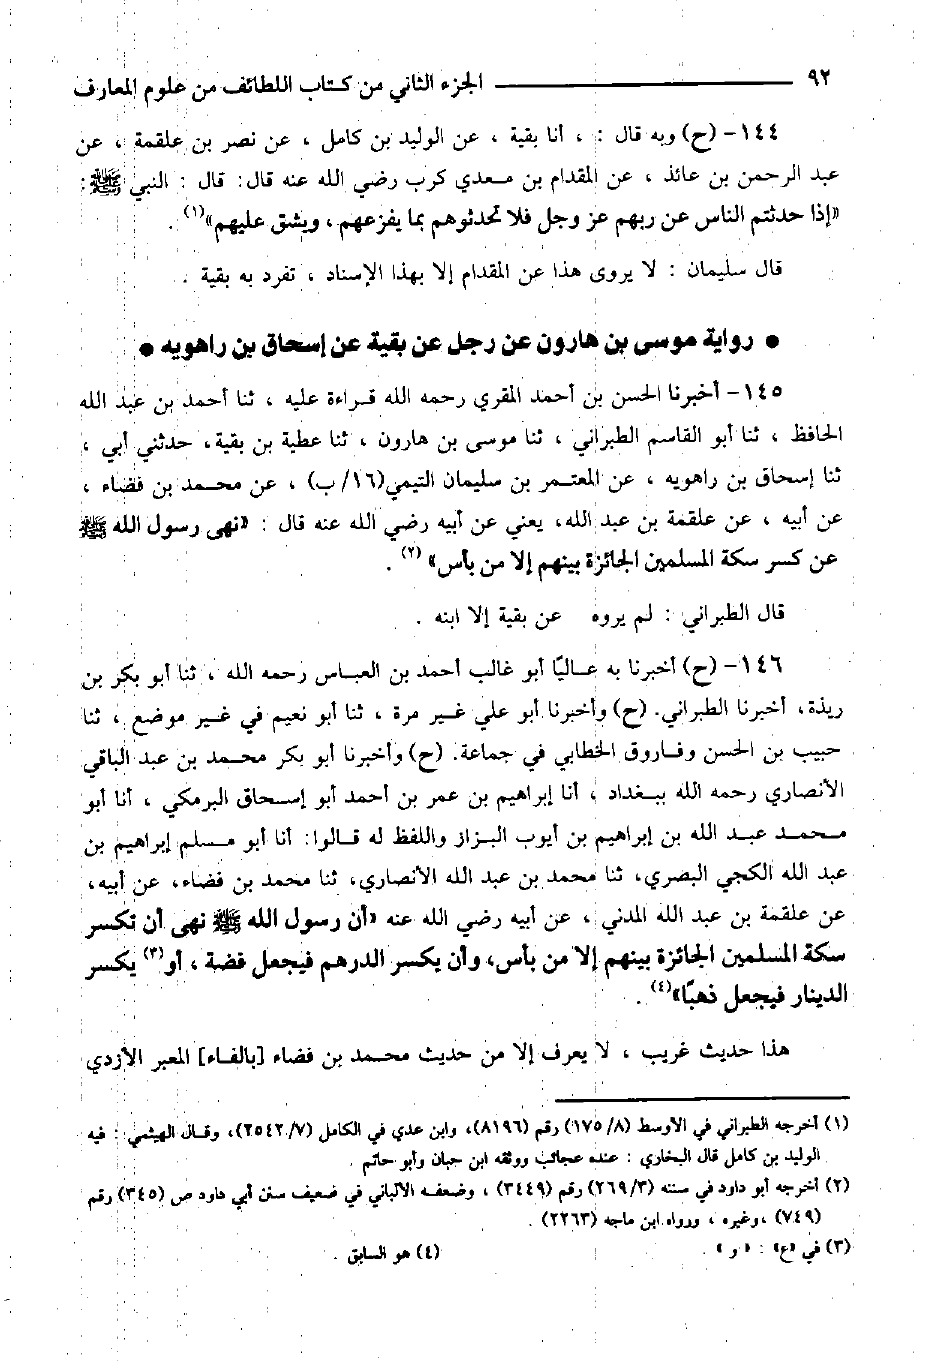 ٩٢ الجزء الثاني من كتاب اللطائف من علوم المعارف
١٤٤- (ح) وبه قال : ، أنا بقية ، عن الوليد بن كامل ، عن نصر بن علقمة ، عن
عبد الرحمن بن عائذ ، عن المقدام بن معدي كرب رضي الله عنه قال: قال : النبي ﷺ:
«إذا حدثتم الناس عن ربهم عز وجل فلا تحدثوهم بما يفزعهم ، ويشق عليهم»(١) .
قال سليمان : لا يروى هذا عن المقدام إلا بهذا الإسناد ، تفرد به بقية .
● رواية موسى بن هارون عن رجل عن بقية عن إسحاق بن راهويه ●
١٤٥- أخبرنا الحسن بن أحمد المقري رحمه الله قراءة عليه ، ثنا أحمد بن عبد الله
الحافظ ، ثنا أبو القاسم الطبراني ، ثنا موسى بن هارون ، ثنا عطية بن بقية، حدثني أبي ،
ثنا إسحاق بن راهويه ، عن المعتمر بن سليمان التيمي(١٦/ ب) ، عن محمد بن فضاء ،
عن أبيه ، عن علقمة بن عبد الله، يعني عن أبيه رضي الله عنه قال : «نهى رسول الله ﷺ
عن كسر سكة المسلمين الجائزة بينهم إلا من بأس» (٢) .
قال الطبراني : لم يروه عن بقية إلا ابنه .
١٤٦- (ح) أخبرنا به عاليًا أبو غالب أحمد بن العباس رحمه الله ، ثنا أبو بكر بن
ريذة، أخبرنا الطبراني. (ح) وأخبرنا أبو علي غير مرة ، ثنا أبو نعيم في غير موضع ، ثنا
حبيب بن الحسن وفاروق الخطابي في جماعة. (ح) وأخبرنا أبو بكر محمد بن عبد الباقي
الأنصاري رحمه الله ببغداد ، أنا إبراهيم بن عمر بن أحمد أبو إسحاق البرمكي ، أنا أبو
محمد عبد الله بن إبراهيم بن أيوب البزاز واللفظ له قالوا: أنا أبو مسلم إبراهيم بن
عبد الله الكجي البصري، ثنا محمد بن عبد الله الأنصاري، ثنا محمد بن فضاء، عن أبيه،
عن علقمة بن عبد الله المدني ، عن أبيه رضي الله عنه «أن رسول الله ﷺ نهى أن تكسر
سكة المسلمين الجائزة بينهم إلا من بأس، وأن يكسر الدرهم فيجعل فضة ، أو(٣) يكسر
الدينار فيجعل ذهبًا»(٤) .
هذا حديث غريب ، لا يعرف إلا من حديث محمد بن فضاء [بالفاء] المعبر الأزدي
(١) أخرجه الطبراني في الأوسط (٨/ ١٧٥) رقم (٨١٩٦)، وابن عدي في الكامل (٧/ ٢٥٤٢)، وقال الهيثمي : فيه
الوليد بن كامل قال البخاري : عنده عجائب ووثقه ابن حبان وأبو حاتم .
(٢) أخرجه أبو داود في سننه (٣/ ٢٦٩) رقم (٣٤٤٩) ، وضعفه الألباني في ضعيف سنن أبي داود ص (٣٤٥) رقم
(٧٤٩) ،وغيره ، ورواه ابن ماجه (٢٢٦٣) .
(٣) في «ع» : «و» . (٤) هو السابق .